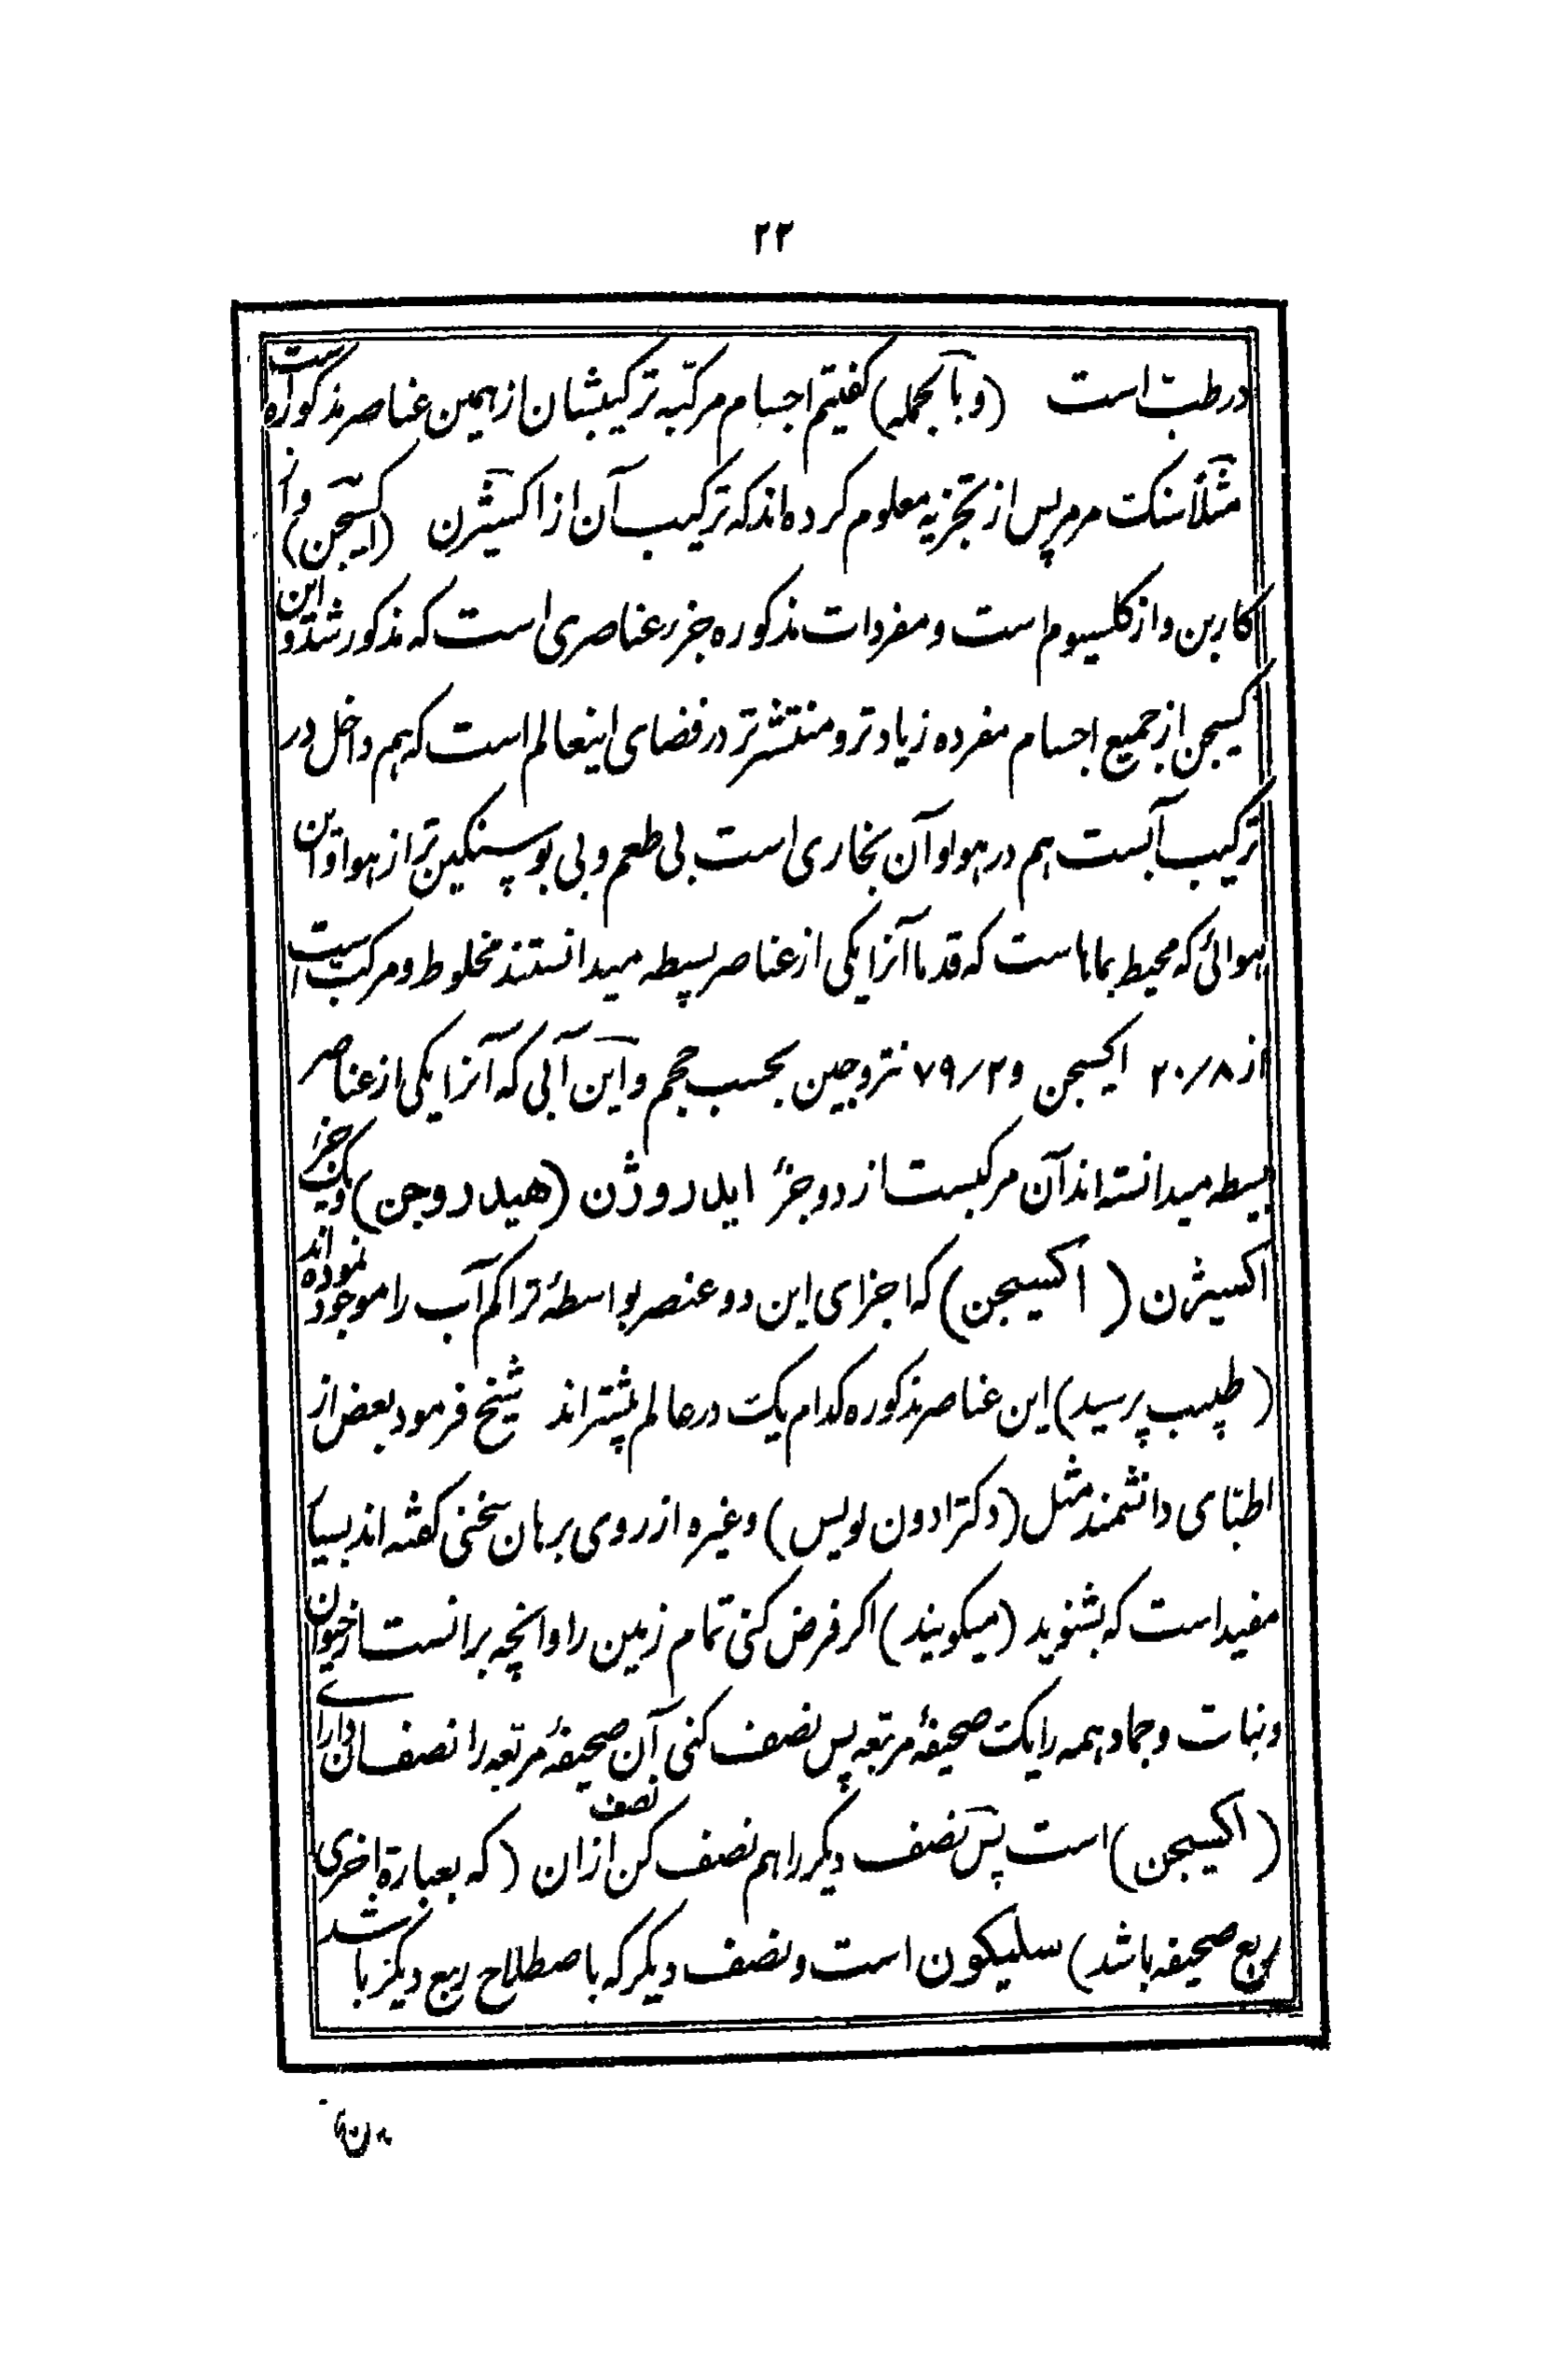 ۲۲
در طب است (و بالجمله) کفتیم اجسام مرکّبه ترکیبشان از همین عناصر مذکوره است
مثلاً سنک مرمر پس از تجزیه معلوم کرده‌اند که ترکیب آن از اکسیژن (اکسیجن) و از
کاربن و از کلسیوم است و مفردات مذکوره جزء عناصری است که مذکور شد و این
اکسیجن از جمیع اجسام مفرده زیادتر و منتشرتر در فضای اینعالم است که هم داخل در
ترکیب آبست هم در هوا و آن بخاری است بی طعم و بی بو سنکین تر از هوا و این
هوائی که محیط بماها است که قدما آنرا یکی از عناصر بسیطه میدانستند مخلوط و مرکب است
از ۲۰/۸ اکسیجن و ۷۹/۲ نتروجین بحسب حجم و این آبی که آنرا یکی از عناصر
بسیطه میدانسته‌اند آن مرکبست از دو جزء ایدروژن (هیدروجن) و یک جزء
اکسیژن (اکسیجن) که اجزای این دو عنصر بواسطهٔ تراکم آب را موجود نموده اند
(طبیب پرسید) این عناصر مذکوره کدام یک در عالم بیشتراند شیخ فرمود بعض از
اطبای دانشمند مثل (دکتر ادون لویس) و غیره از روی برهان سخنی کفته اند بسیا
مفید است که بشنوید (میکویند) اکر فرض کنی تمام زمین را وانچه برانست از حیوان
و نبات و جماد همه را یک صحیفهٔ مربعه پس نصف کنی آن صحیفهٔ مربعه را نصف آن دارای
(اکسیجن) است پس نصف دیکر را هم نصف کن نصف ازان (که بعبارة اخری
ربع صحیفه باشد) سلیکون است و نصف دیکر که باصطلاح ربع دیکر باشد